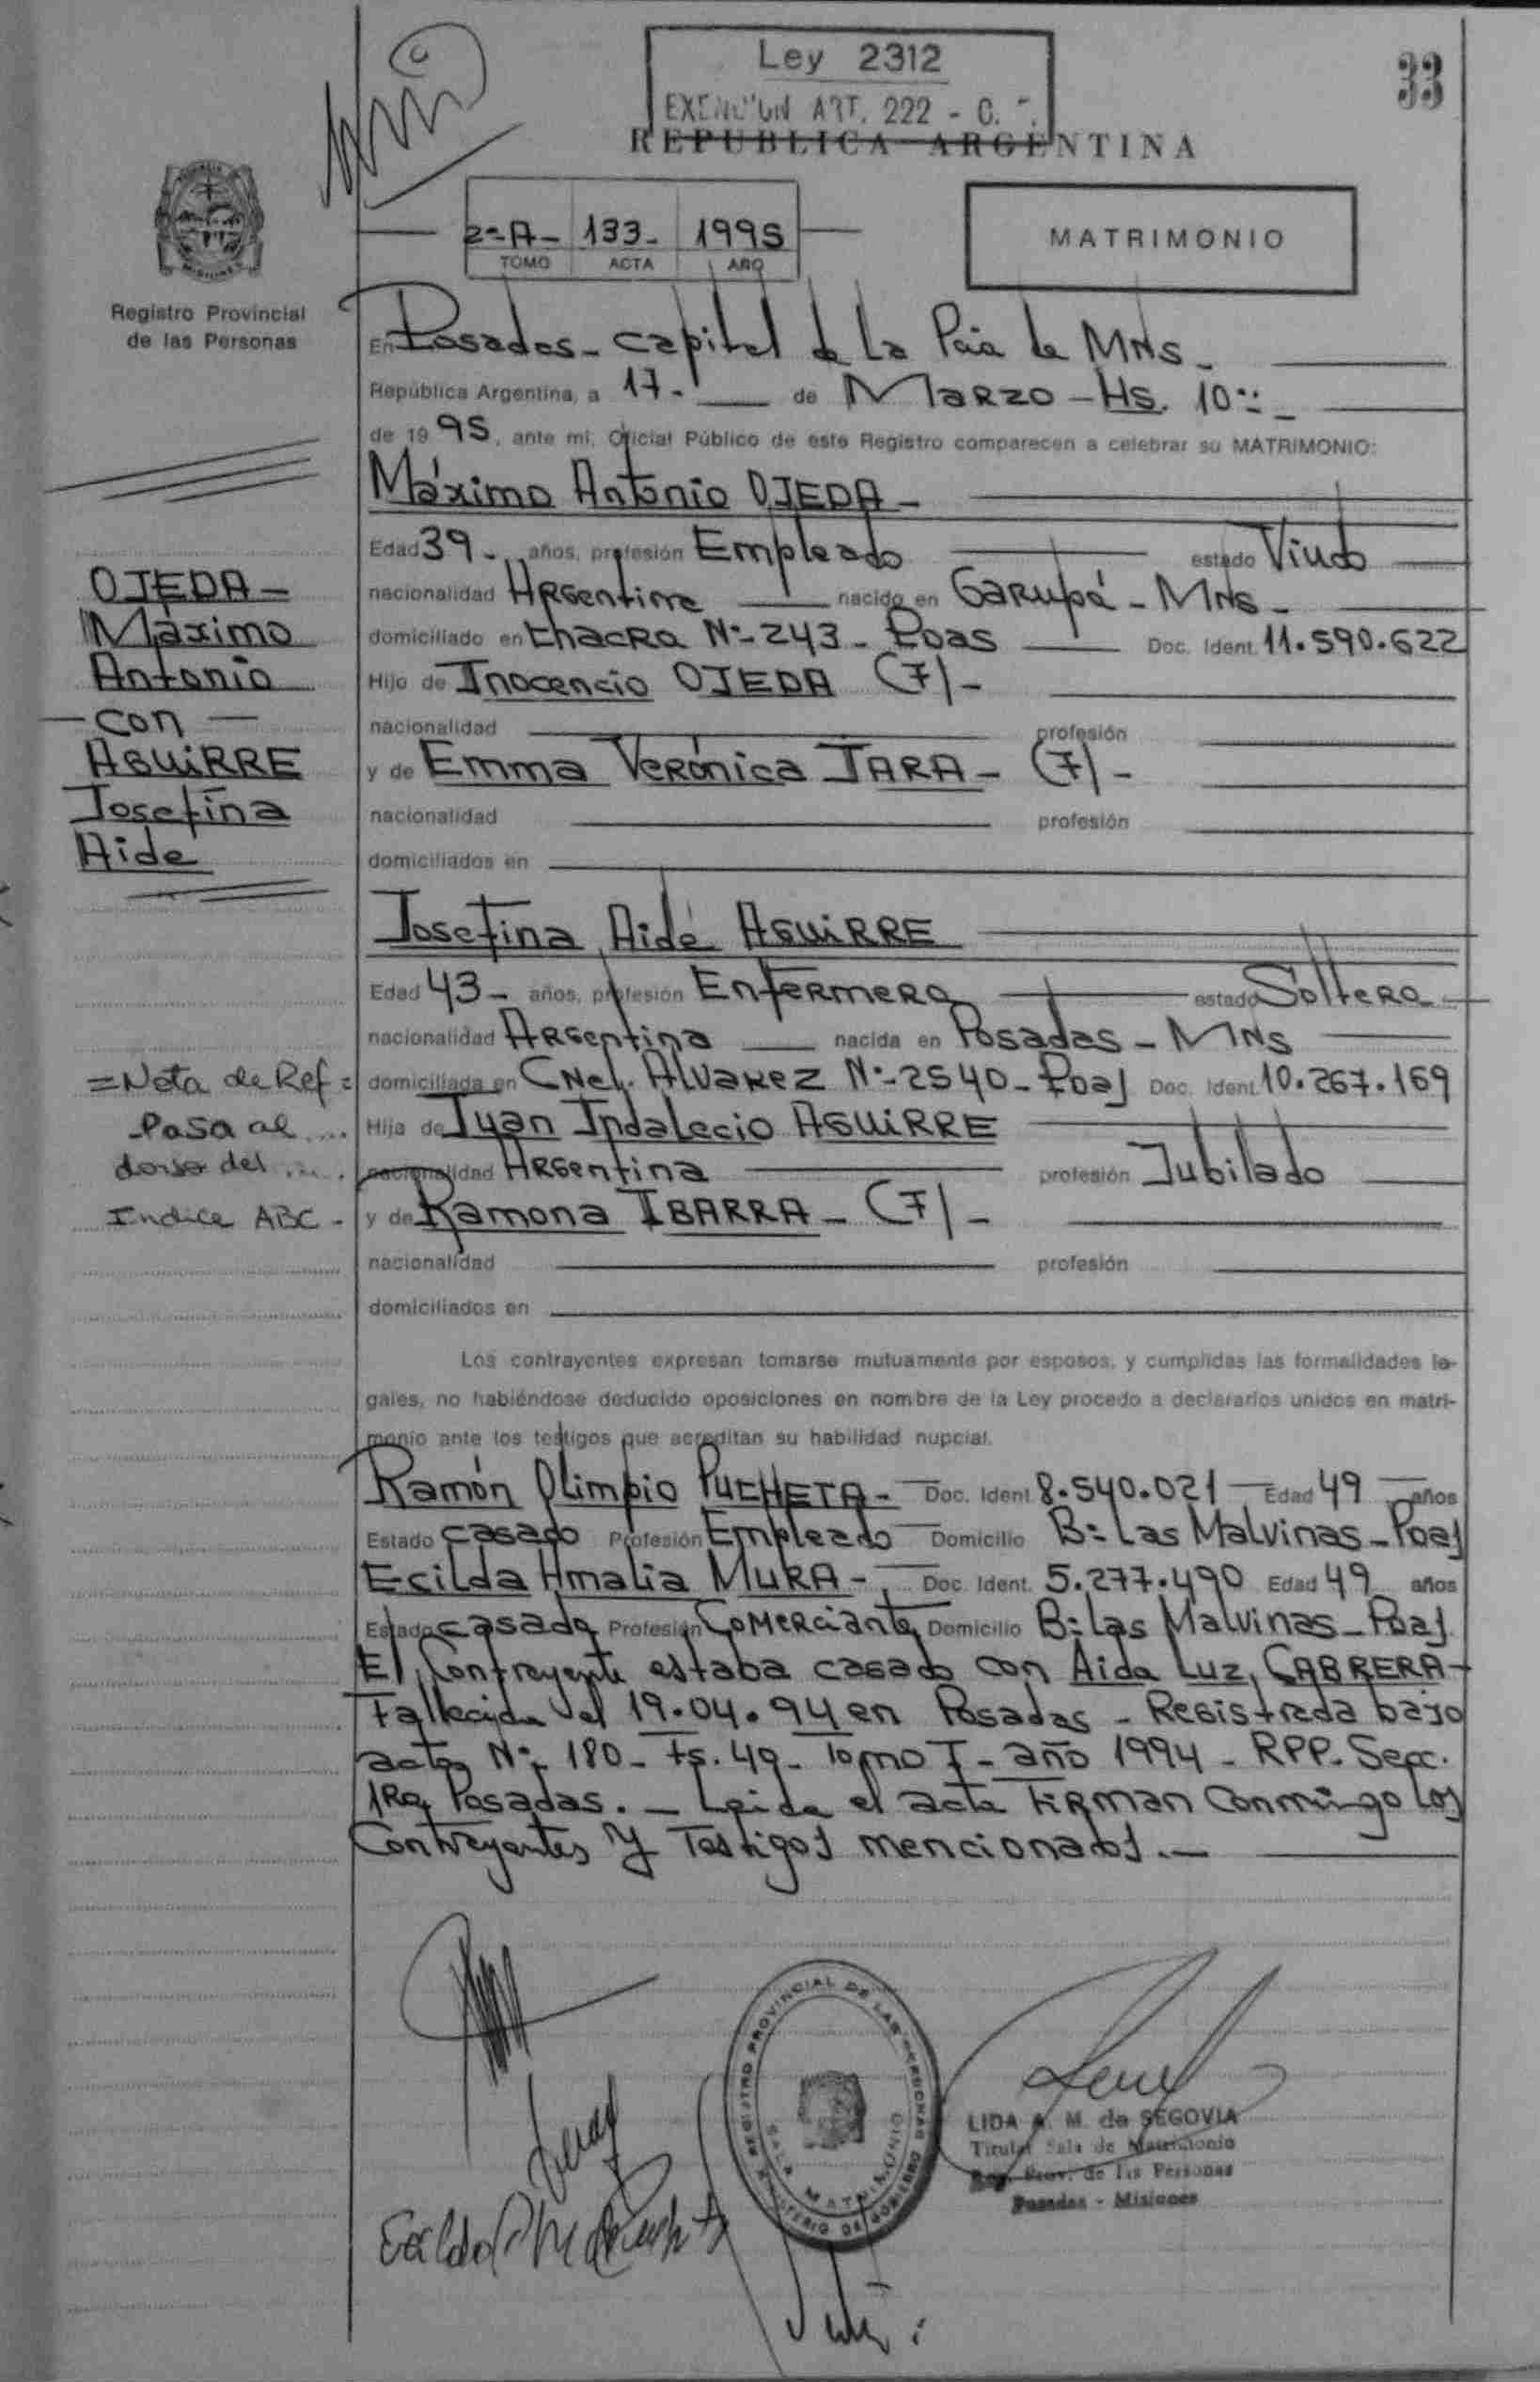 Ley 2312
ART. 222 -
33
REPUBLICA ARGENTINA
2º-A- 133- 1995
TOMO ACTA AÑO
MATRIMONIO
Registro Provincial
de las Personas
En Posadas - Capital de la Pcia de MNS -
República Argentina, a 17- de MARZO - HS. 10
de 1995, ante mí, Oficial Público de este Registro comparecen a celebrar su MATRIMONIO:
Máximo Antonio OJEDA -
Edad 39- años, profesión Empleado estado Viudo
nacionalidad Argentina nacido en Garupá - MNS -
domiciliado en Chacra Nº-243- Pdas Doc. Ident. 11.590.622
Hijo de Inocencio OJEDA (F) -
nacionalidad profesión
y de Emma Verónica JARA - (F) -
nacionalidad profesión
domiciliados en
OJEDA -
Máximo
Antonio
- con -
AGUIRRE
Josefina
Aide
Josefina Aidé AGUIRRE
Edad 43- años, profesión Enfermera estado Soltera -
nacionalidad Argentina nacida en Posadas - MNS
domiciliada en CNel. Alvarez Nº-2540- Pdas Doc. Ident. 10.267.169
Hija de Juan Indalecio AGUIRRE
nacionalidad Argentina profesión Jubilado
y de Ramona IBARRA - (F) -
nacionalidad profesión
domiciliados en
= Nota de Ref =
-Pasa al ....
dorso del ....
Indice ABC -
Los contrayentes expresan tomarse mutuamente por esposos, y cumplidas las formalidades le-
gales, no habiéndose deducido oposiciones en nombre de la Ley procedo a declararlos unidos en matri-
monio ante los testigos que acreditan su habilidad nupcial.
Ramón Olimpio PUCHETA - Doc. Ident. 8.540.021 Edad 49 años
Estado casado Profesión Empleado Domicilio Bº Las Malvinas - Pdas
Ecilda Amalia MURA - Doc. Ident. 5.277.490 Edad 49 años
Estado casada Profesión Comerciante Domicilio Bº Las Malvinas - Pdas.
El Contrayente estaba casado con Aida Luz CABRERA -
Fallecida el 19.04.94 en Posadas - Registrada bajo
acta Nº- 180- Fs. 49- Tomo I - año 1994 - RPP- Secc.
1Ra Posadas. - Leida el acta firman conmigo los
Contrayentes y Testigos mencionados. -
REGISTRO PROVINCIAL DE LAS PERSONAS
MINISTERIO DE GOBIERNO
SALA MATRIMONIO
LIDA A. M. de SEGOVIA
Titular Sala de Matrimonio
Reg. Prov. de las Personas
Posadas - Misiones